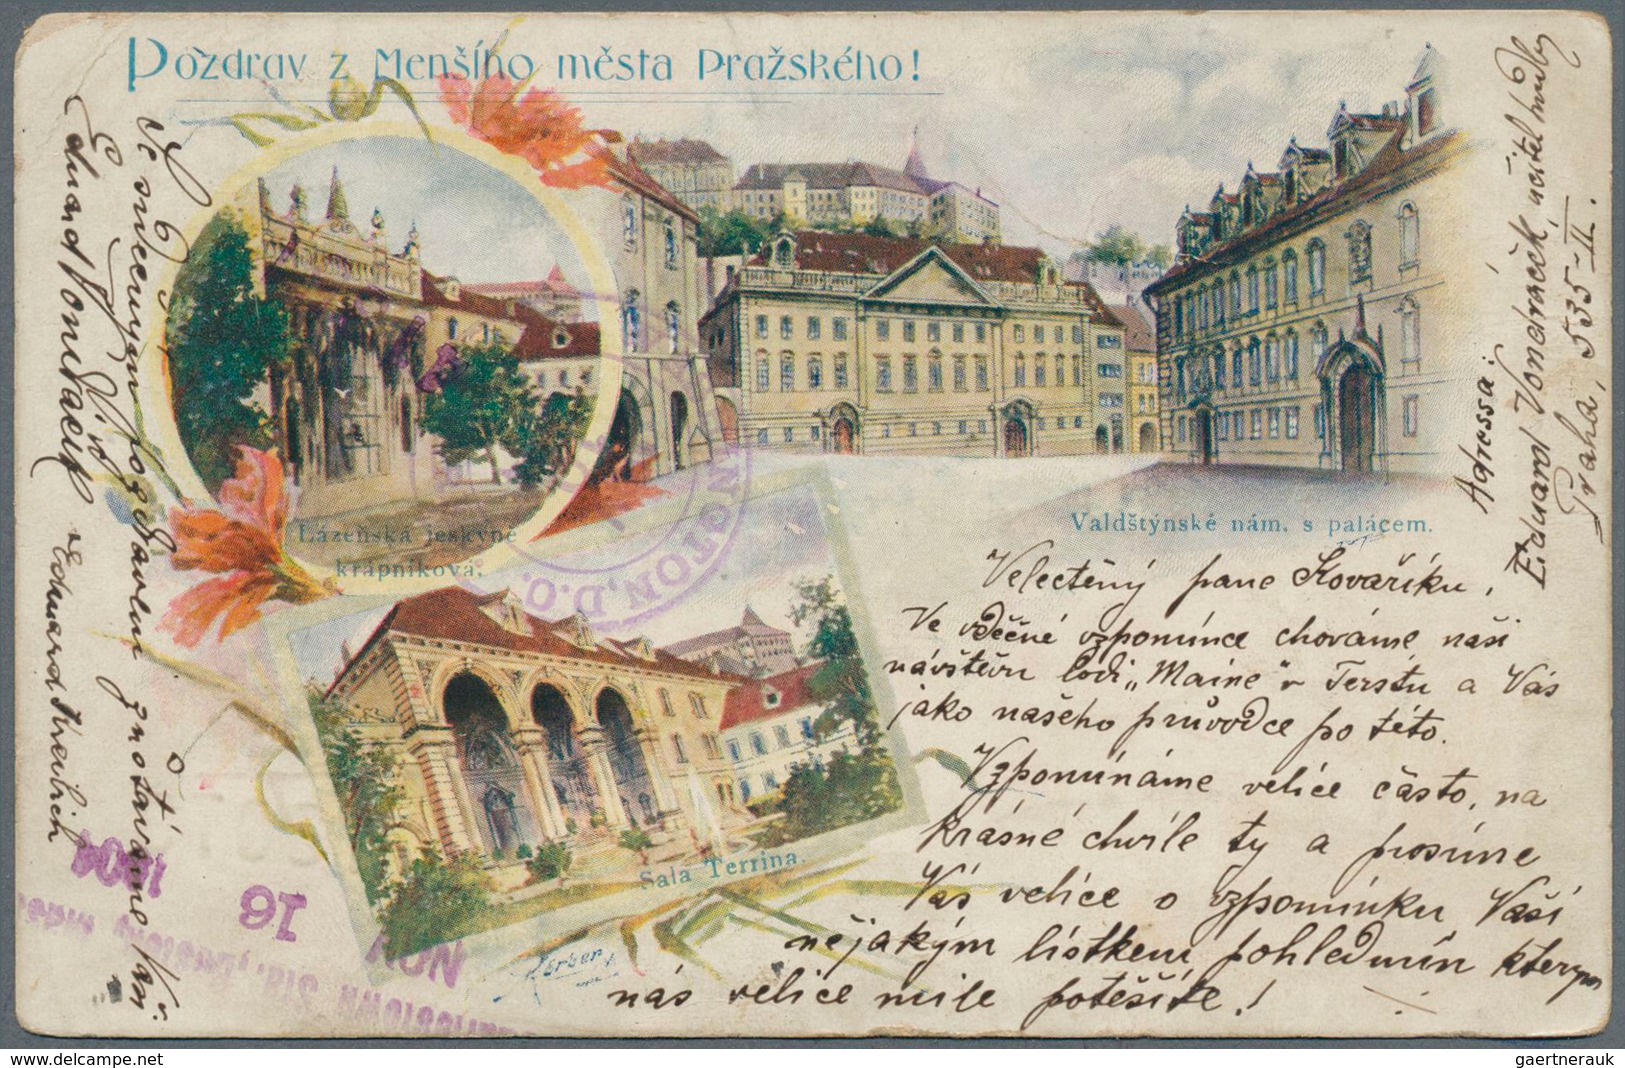 Pozdrav z Menšího města Pražského!
Lázeňská jeskyně
krápníková.
Valdštýnské nám. s palácem.
Sala Terrina.
Velectěný pane Kovaříku,
Ve vděčné vzpomínce chováme naši
návštěvu lodi „Maine" v Terstu a Vás
jako našeho průvodce po této.
Vzpomínáme velice často, na
krásné chvíle ty a prosíme
Vás velice o vzpomínku Vaší
nějakým lístkem pohledním kterým
nás velice mile potěšíte!
Adressa:
Eduard Vondráček, učitel hudby
Praha, 535-II.
Se srdečným pozdravem znotáváme Váš
Eduard Vondráček
NGTON, D.C.
NOV
16
1904
delcampe.net
gaertnerauk